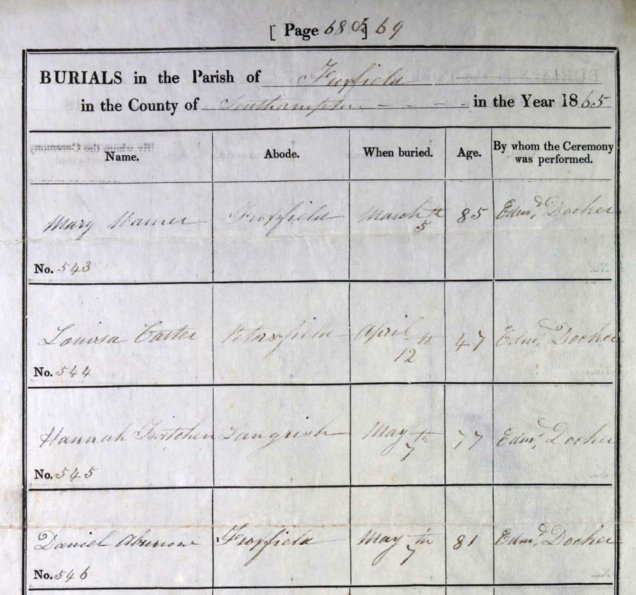 [ Page 68 & ] 69
BURIALS in the Parish of Froxfield
in the County of Southampton in the Year 1865
Name. Abode. When buried. Age. By whom the Ceremony was performed.
Mary Warner Froxfield March 5th 85 Edmd. Docker
No. 543
Louisa Carter Petersfield April 12th 47 Edmd. Docker
No. 544
Hannah Langrish May 7th 77 Edmd. Docker
No. 545
Daniel Froxfield May 7th 81 Edmd. Docker
No. 546